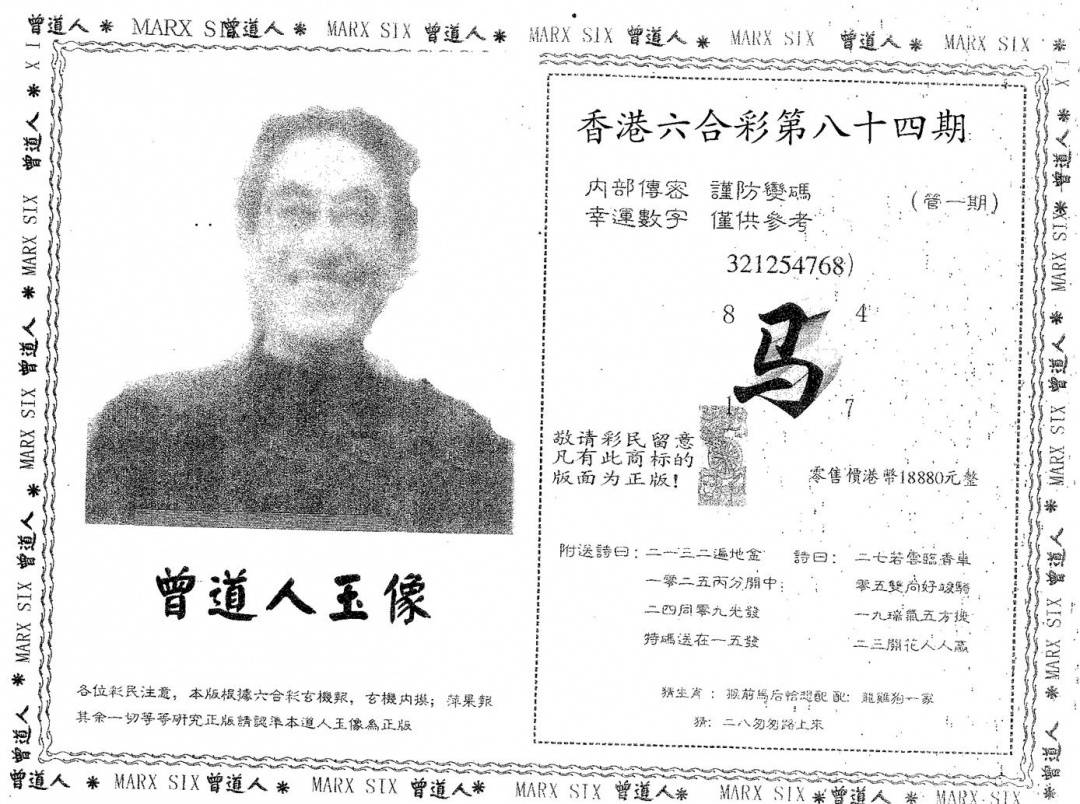 曾道人 * MARX SIX 曾道人 * MARX SIX 曾道人 * MARX SIX 曾道人 * MARX SIX 曾道人 * MARX SIX *
曾道人 * MARX SIX 曾道人 * MARX SIX 曾道人 * MARX SIX 曾道人 *
曾道人玉像
各位彩民注意，本版根據六合彩玄機報，玄機內摸；萍果報
其余一切等等研究正版請認準本道人玉像為正版
香港六合彩第八十四期
内部傳密 謹防變碼
(管一期)
幸運數字 僅供參考
321254768)
8 4
马
1 7
敬请彩民留意
凡有此商标的
版面为正版!
零售價港幣18880元整
附送詩曰：二一三二遍地金
一零二五丙分開中
二四同零九光發
特碼送在一五發
詩曰：二七若雲臨香車
零五雙向好駿騎
一九瑞氣五方
二三開花人人贏
猜生肖：猴前馬后恰想配 配：龍雞狗一家
猜：二八匆匆路上來
曾道人 * MARX SIX 曾道人 * MARX SIX 曾道人 * MARX SIX 曾道人 *
曾道人 * MARX SIX 曾道人 * MARX SIX 曾道人 * MARX SIX 曾道人 * MARX SIX * 曾道人 * MARX SIX